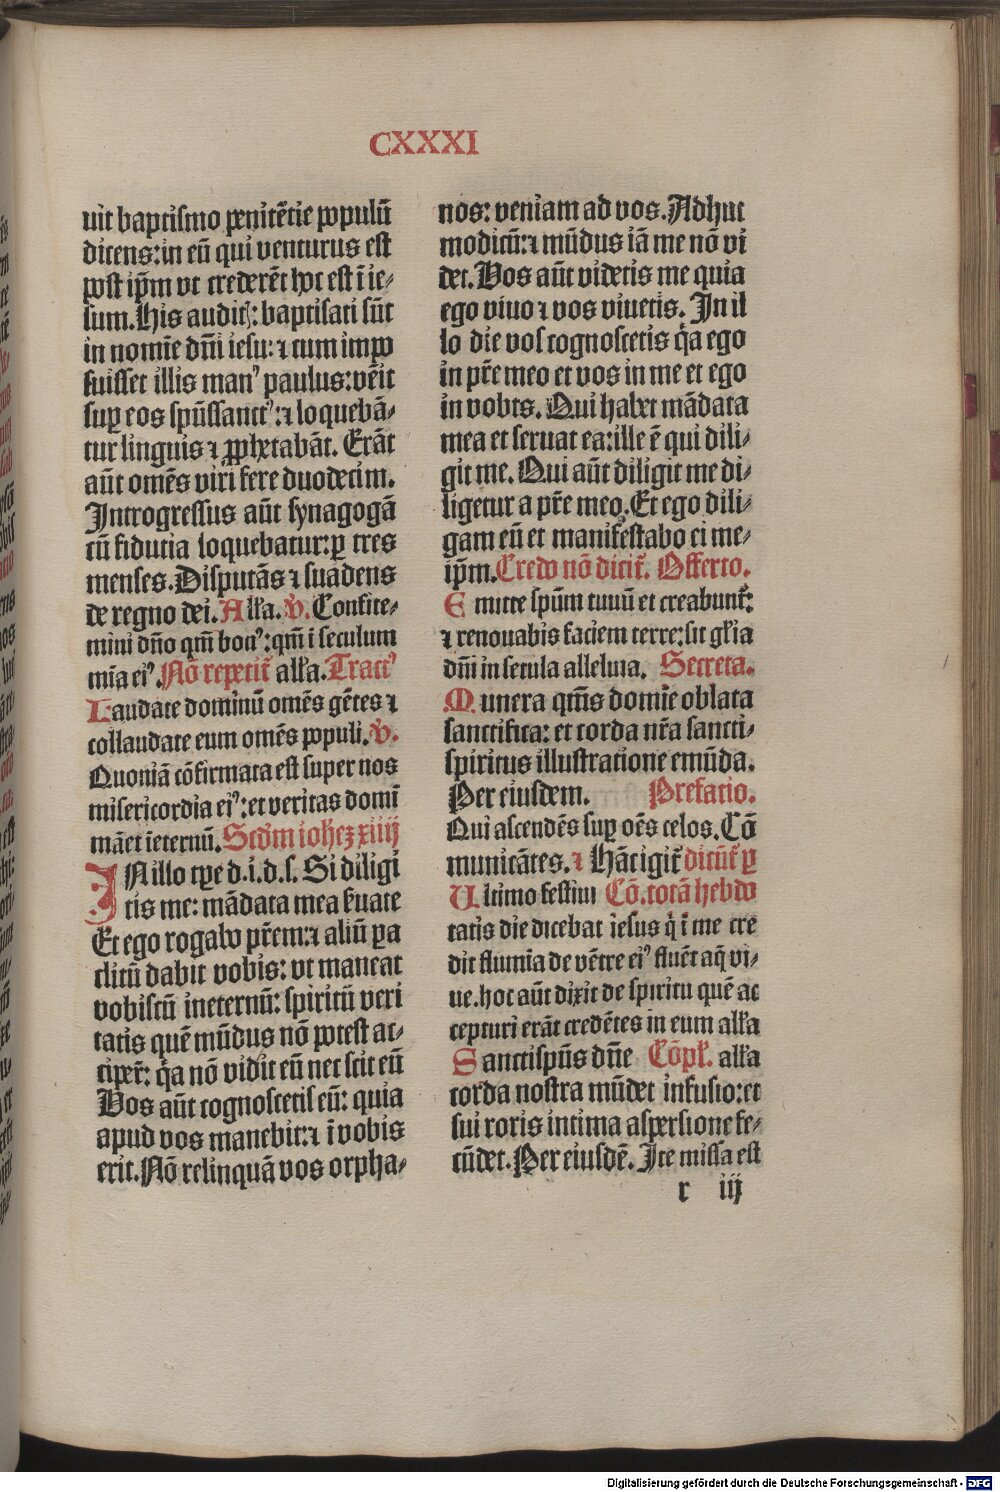 CXXXI
uit baptismo penitētie populū
dicens: in eū qui venturus est
post ip̄m vt crederēt hoc est ī ie⸗
sum. His auditꝭ: baptisati sūt
in nomīe dn̄i iesu: ⁊ cum impo
suisset illis manꝰ paulus: vēit
suꝑ eos spūssanctꝰ: ⁊ loquebā⸗
tur linguis ⁊ ꝓphetabāt. Erāt
aūt omēs viri fere duodecim.
Introgressus aūt synagogā
cū fiducia loquebatur: ꝑ tres
menses. Disputās ⁊ suadens
de regno dei. Alľa. ꝟ. Confite⸗
mini dn̄o qm̄ bonꝰ: qm̄ ī seculum
mīa eiꝰ. Nō repetit᷑ alľa. Tractꝰ
Laudate dominū omēs gētes ⁊
collaudate eum omēs populi. ꝟ.
Quoniā cōfirmata est super nos
misericordia eiꝰ: et veritas domī
māet īeternū. Scd̄m iohēꝫ xiiij
IN illo tꝑe d. i. d. s. Si diligi
tis me: mādata mea ẜuate
Et ego rogabo pr̄em: ⁊ aliū ꝑa
clitū dabit vobis: vt maneat
vobiscū ineternū: spiritū veri
tatis quē mūdus nō potest ac⸗
cipeꝛ̄: q̇a nō vidit eū nec scit eū
Vos aūt cognoscetis eū: quia
apud vos manebit: ⁊ ī vobis
erit. Nō relinquā vos orpha⸗
nos: veniam ad vos. Adhuc
modicū: ⁊ mūdus iā me nō vi
det. Vos aūt videtis me quia
ego viuo ⁊ vos viuetis. In il
lo die vos cognoscetis q̇a ego
in pr̄e meo et vos in me et ego
in vobis. Qui habet mādata
mea et seruat ea: ille ē qui dili⸗
git me. Qui aūt diligit me di⸗
ligetur a pr̄e meo. Et ego dili⸗
gam eū et manifestabo ei me⸗
ip̄m. Credo nō dicit᷑. Offerto.
Emitte spūm tuuū et creabunt᷑:
⁊ renouabis faciem terre: sit gľia
dn̄i in secula alleluia. Secreta.
Munera qm̄s domīe oblata
sanctifica: et corda nr̄a sancti⸗
spiritus illustratione emūda.
Per eiusdem. Prefatio.
Qui ascendēs suꝑ oēs celos. Cō
municātes. ⁊ Hāc igit᷑ dicūt᷑ ꝑ
Ultimo festiui Cō. totā hebdo
tatis die dicebat iesus q̇ ī me cre
dit flumīa de vētre eiꝰ fluēt aq̄ vi⸗
ue. hoc aūt dixit de spiritu quē ac
cepturi erāt credētes in eum alľa
Sanctispūs dn̄e Cōpľ. alľa
corda nostra mūdet infusio: et
sui roris intima aspersione fe⸗
cūdet. Per eiusdē. Ite missa est
r iij
Digitalisierung gefördert durch die Deutsche Forschungsgemeinschaft - DFG